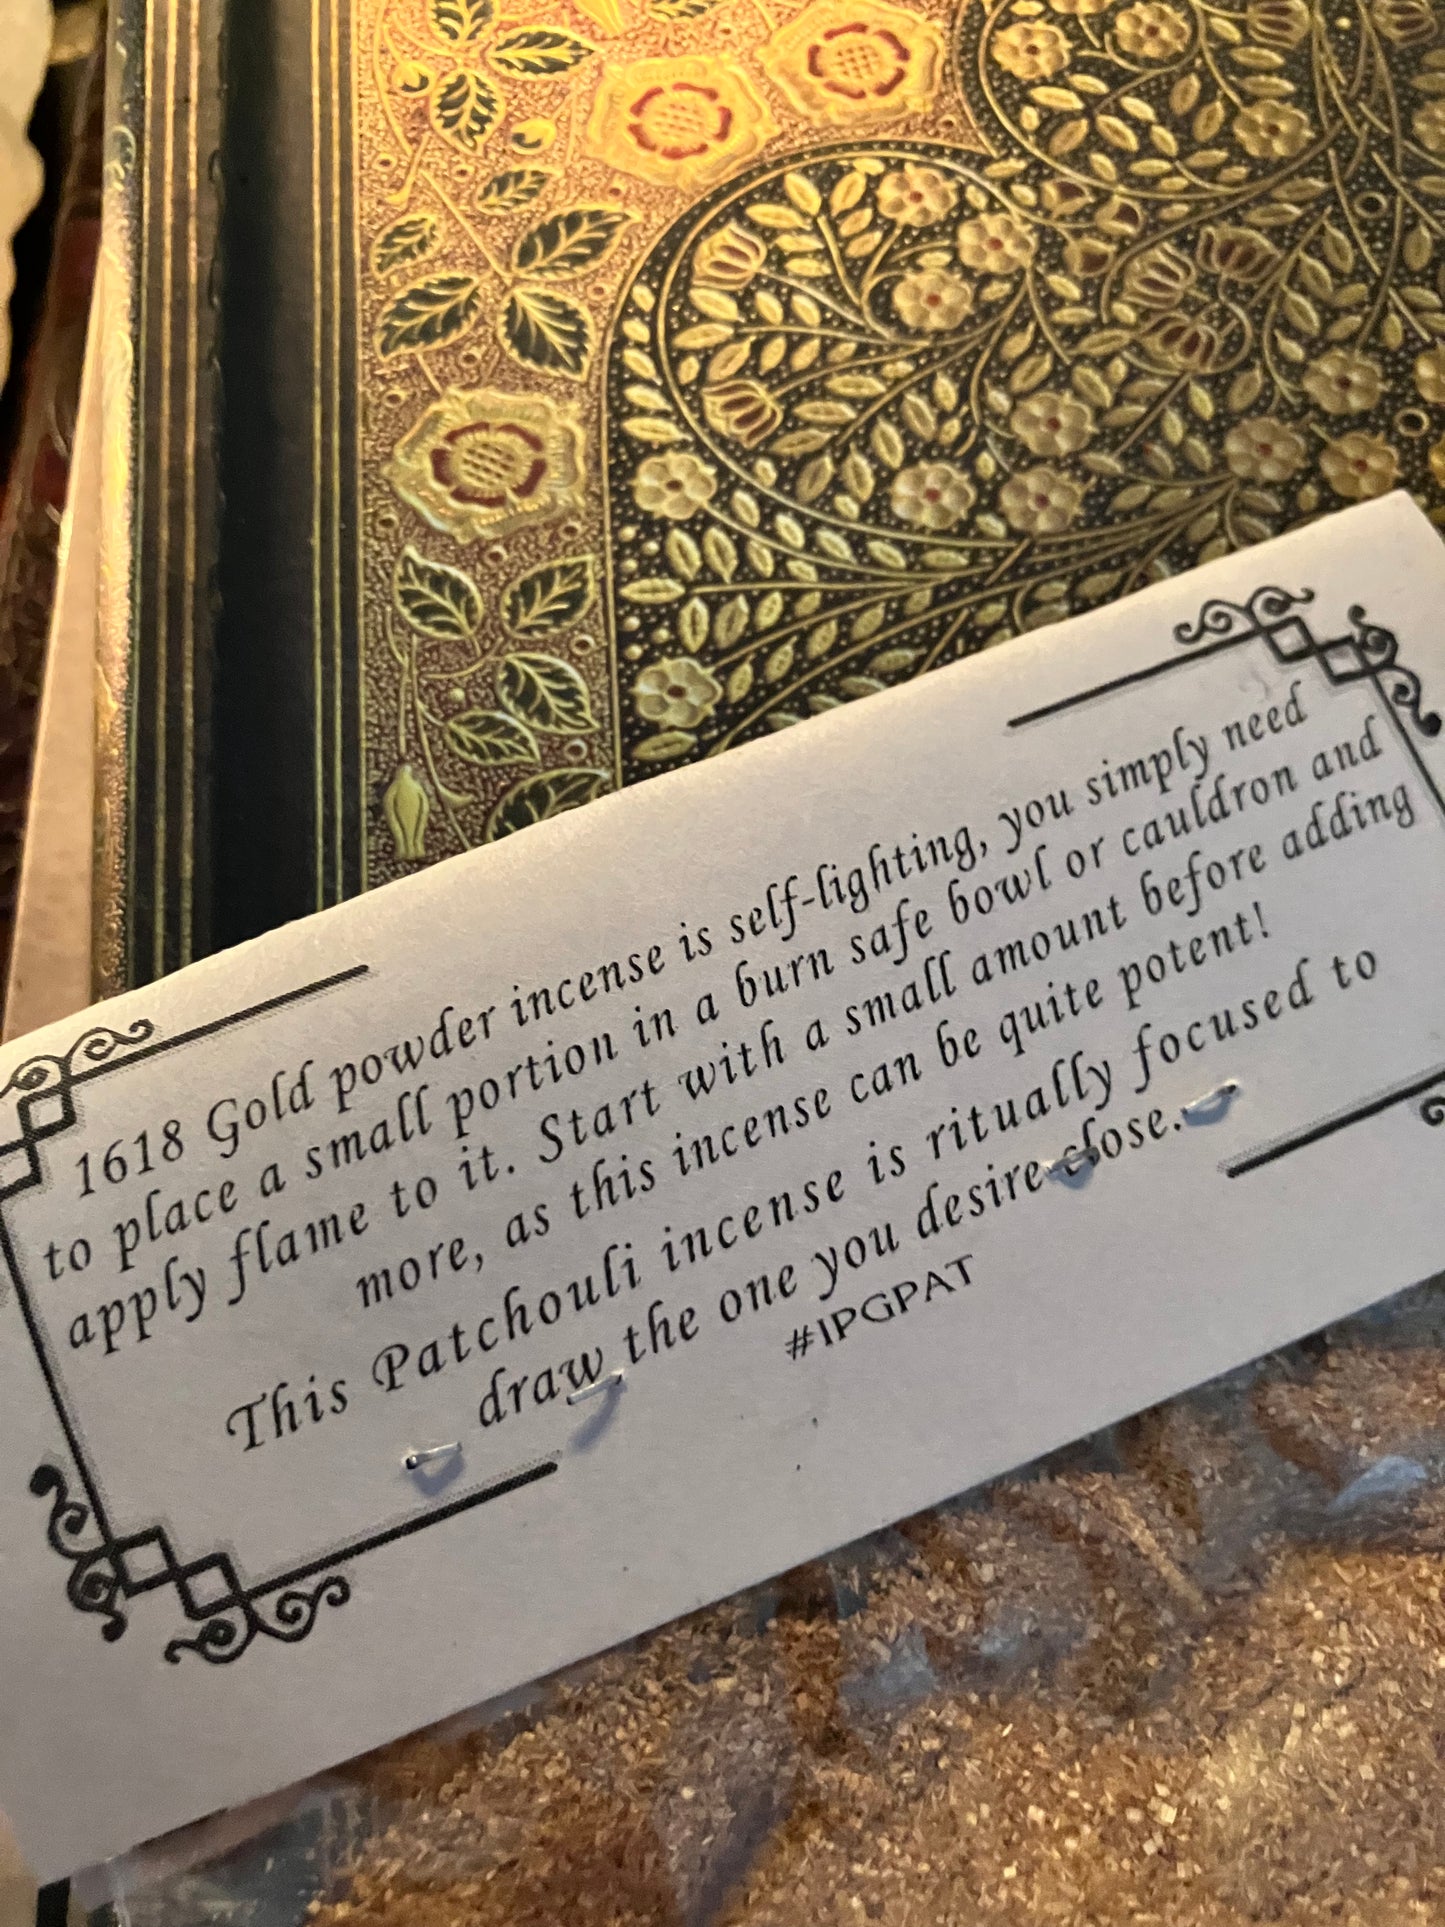 1618 Gold powder incense is self-lighting, you simply need
to place a small portion in a burn safe bowl or cauldron and
apply flame to it. Start with a small amount before adding
more, as this incense can be quite potent!
This Patchouli incense is ritually focused to
draw the one you desire close.
#IPGPAT